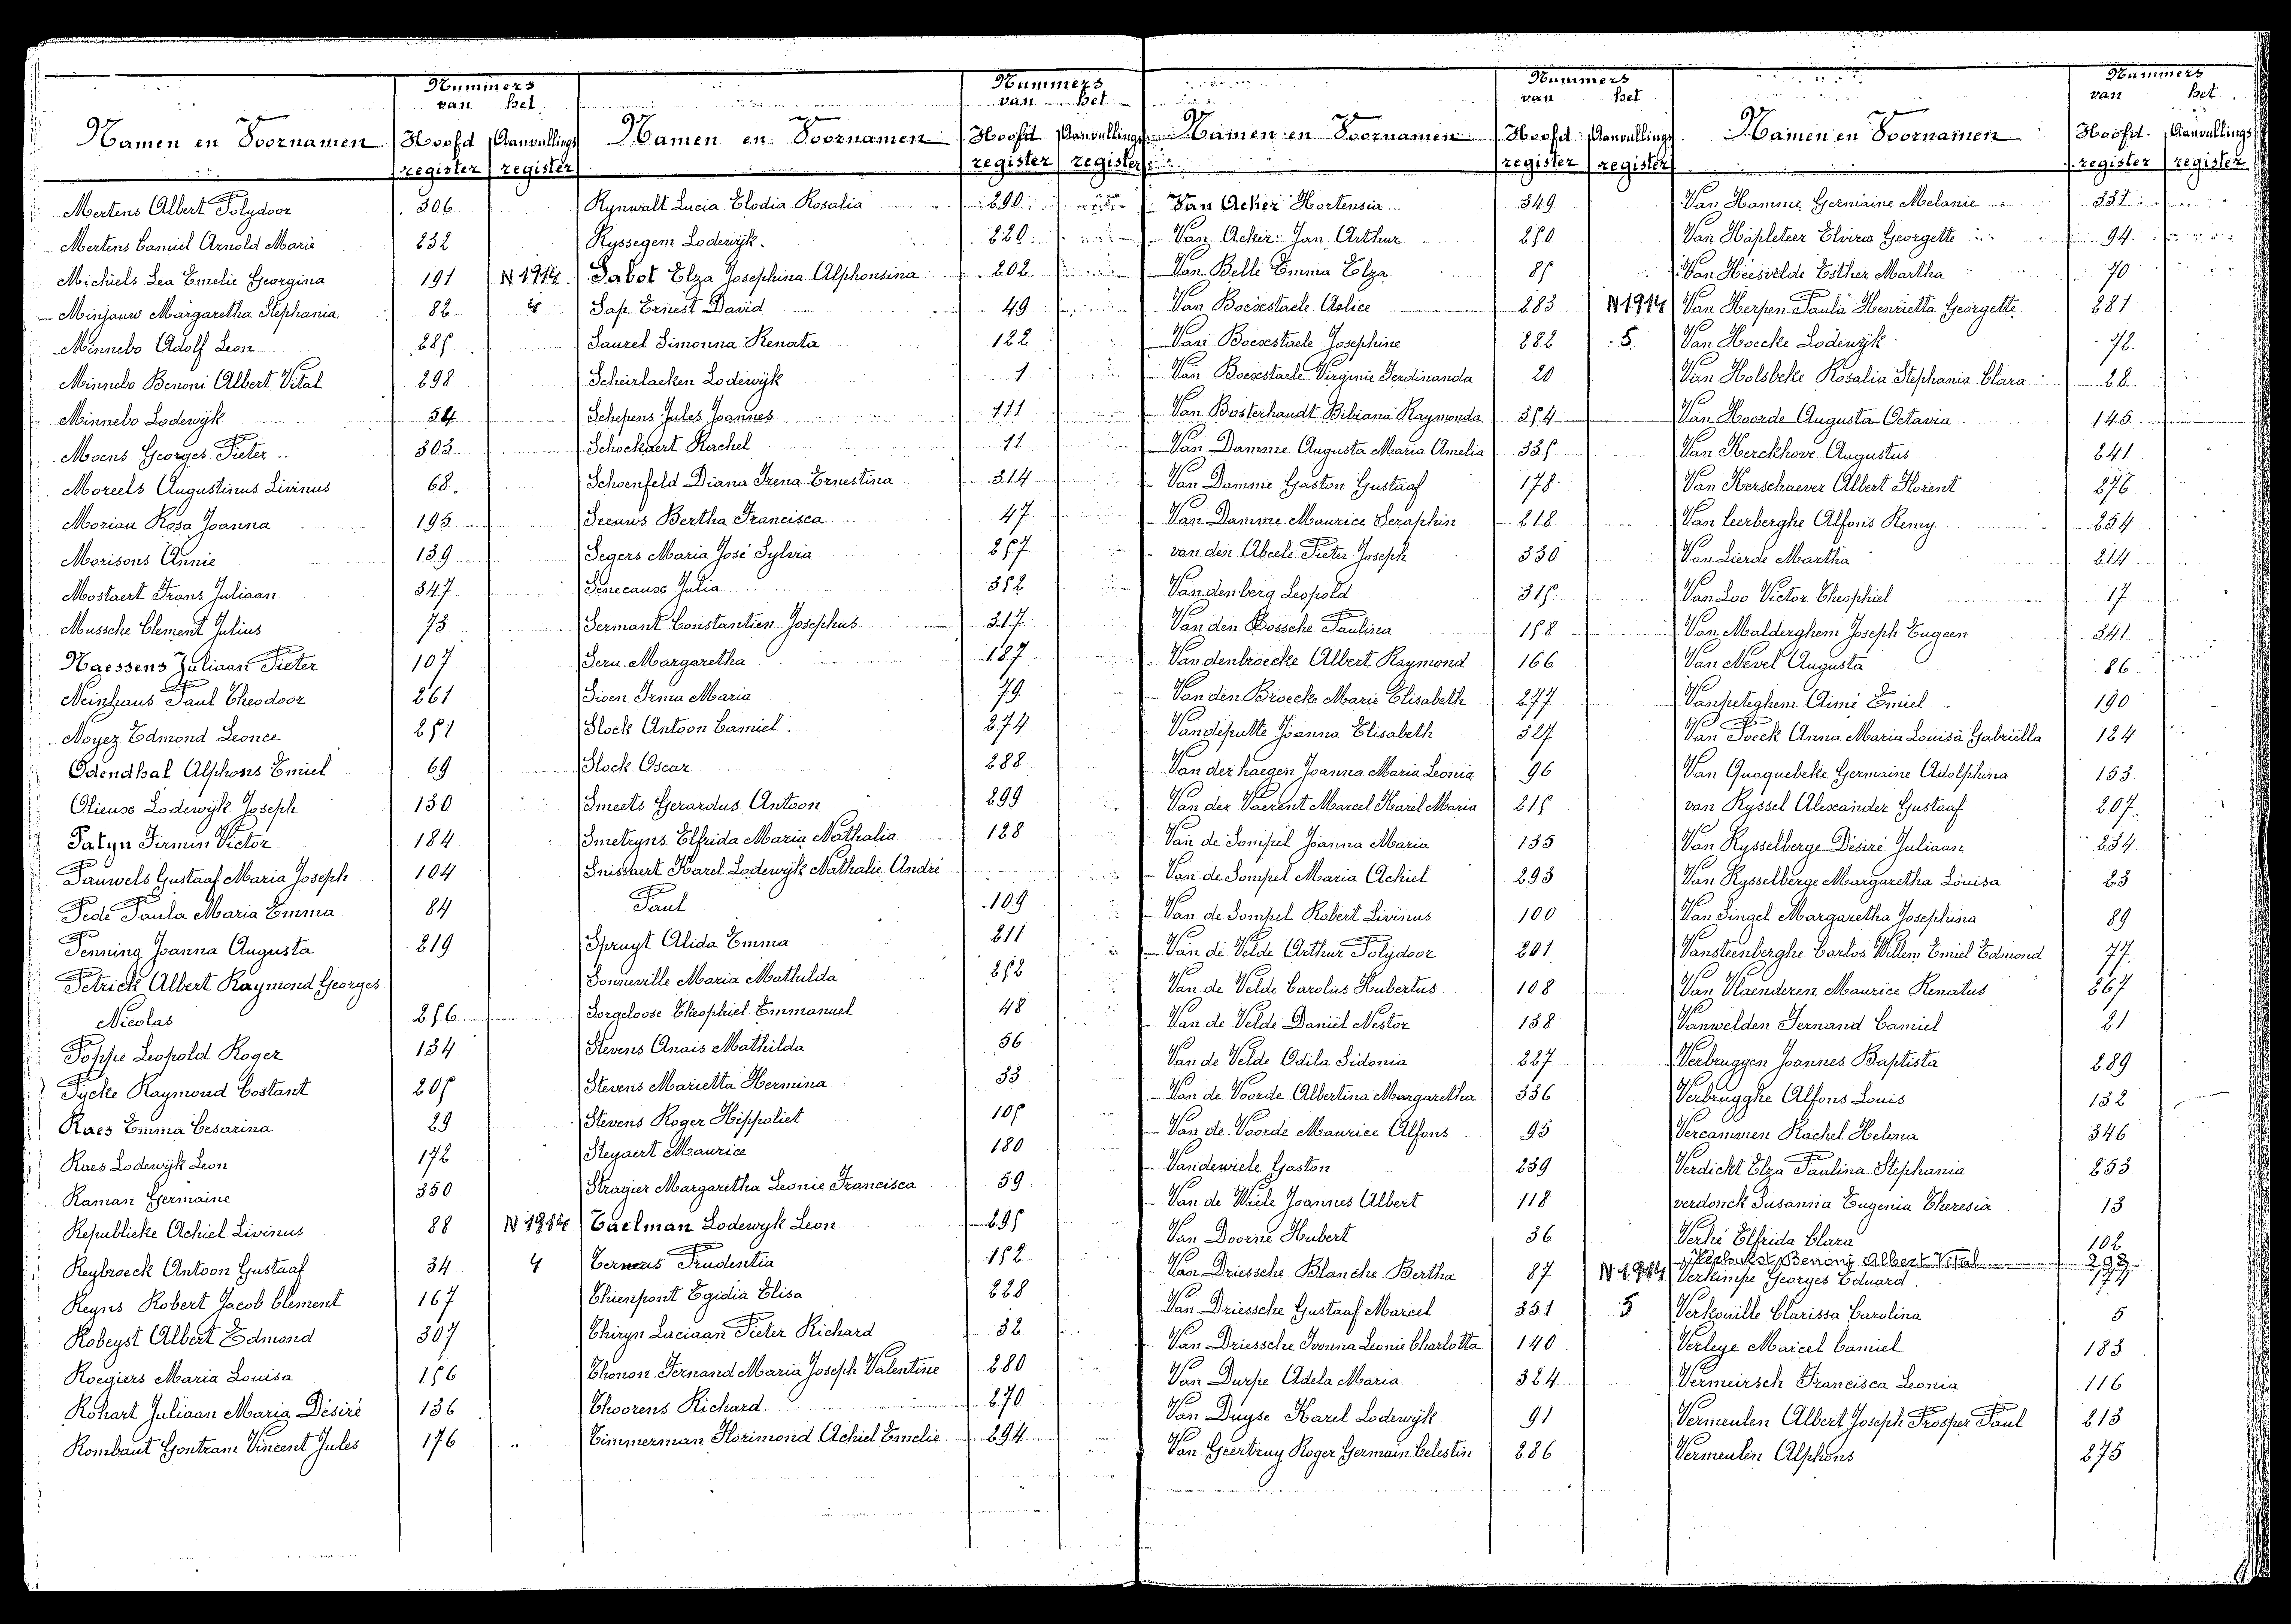 Nummers
van het
Namen en Voornamen Hoofd register Aanvullings register
Mertens Albert Polydoor 306
Mertens Camiel Arnold Marie 232
Michiels Lea Emelie Georgina 191 N 1914
Minjauw Margaretha Stephania 82 4
Minnebo Adolf Leon 285
Minnebo Benoni Albert Vital 298
Minnebo Lodewijk 54
Moens Georges Pieter 303
Moreels Augustinus Livinus 68
Moriau Rosa Joanna 195
Morisons Annie 139
Mostaert Frans Juliaan 347
Mussche Clement Julius 73
Naessens Juliaan Pieter 107
Neinhaus Paul Theodoor 261
Noyez Edmond Leonce 251
Odendhal Alphons Emiel 69
Olieuse Lodewijk Joseph 130
Patyn Firmin Victor 184
Pauwels Gustaaf Maria Joseph 104
Pede Paula Maria Emma 84
Penning Joanna Augusta 219
Petrick Albert Raymond Georges
Nicolas 256
Poppe Leopold Roger 134
Pycke Raymond Costant 205
Raes Emma Cesarina 29
Raes Lodewijk Leon 172
Raman Germaine 350
Republieke Achiel Livinus 88 N 1914
Reybroeck Antoon Gustaaf 34 4
Reyns Robert Jacob Clement 167
Robeyst Albert Edmond 307
Roegiers Maria Louisa 156
Rohart Juliaan Maria Désiré 136
Rombaut Gontram Vincent Jules 176
Nummers
van het
Namen en Voornamen Hoofd register Aanvullings register
Rynwalt Lucia Elodia Rosalia 290
Ryssegem Lodewijk 220
Sabot Elza Josephina Alphonsina 202
Sap Ernest David 49
Saurel Simonna Renata 122
Scheirlaeken Lodewijk 1
Schepens Jules Joannes 111
Schockaert Rachel 11
Schoenfeld Diana Irena Ernestina 314
Seeuws Bertha Francisca 47
Segers Maria José Sylvia 257
Senecause Julia 352
Sermant Constantien Josephus 317
Seru Margaretha 187
Sioen Irma Maria 79
Slock Antoon Camiel 274
Slock Oscar 288
Smeets Gerardus Antoon 299
Smetryns Elfrida Maria Nathalia 128
Snissaert Karel Lodewijk Nathalie André
Paul 109
Spruyt Alida Emma 211
Sonneville Maria Mathilda 252
Sorgeloose Theophiel Emmanuel 48
Stevens Anais Mathilda 56
Stevens Marietta Hermina 33
Stevens Roger Hippoliet 105
Steyaert Maurice 180
Stragier Margaretha Leonie Francisca 59
Taelman Lodewyk Leon 295
Ternas Prudentia 152
Thienpont Egidia Elisa 228
Thiryn Luciaan Pieter Richard 32
Thonon Fernand Maria Joseph Valentine 280
Thoorens Richard 270
Timmerman Florimond Achiel Emelie 294
Nummers
van het
Namen en Voornamen Hoofd register Aanvullings register
Van Acker Hortensia 349
Van Acker Jan Arthur 250
Van Belle Emma Elza 85
Van Boexstaele Aelice 283 N 1914
Van Boexstaele Josephine 282 5
Van Boexstaele Virginie Ferdinanda 20
Van Bosterhaudt Bibiana Raymonda 354
Van Damme Augusta Maria Amelia 335
Van Damme Gaston Gustaaf 178
Van Damme Maurice Seraphin 218
van den Abeele Pieter Joseph 330
Vandenberg Leopold 315
Van den Bossche Paulina 158
Vandenbroecke Albert Raymond 166
Van den Broecke Marie Elisabeth 277
Vandeputte Joanna Elisabeth 327
Van der haegen Joanna Maria Leonia 96
Van der Vaerent Marcel Karel Maria 215
Van de Sompel Joanna Maria 135
Van de Sompel Maria Achiel 293
Van de Sompel Robert Livinus 100
Van de Velde Arthur Polydoor 201
Van de Velde Carolus Hubertus 108
Van de Velde Daniël Nestor 138
Van de Velde Odila Sidonia 227
Van de Voorde Albertina Margaretha 336
Van de Voorde Maurice Alfons 95
Vandewiele Gaston 239
Van de Wiele Joannes Albert 118
Van Doorne Hubert 36
Van Driessche Blanche Bertha 87 N 1914
Van Driessche Gustaaf Marcel 351 5
Van Driessche Ivonna Leonie Charlotta 140
Van Durpe Adela Maria 324
Van Duyse Karel Lodewijk 91
Van Geertruy Roger Germain Celestin 286
Nummers
van het
Namen en Voornamen Hoofd register Aanvullings register
Van Hamme Germaine Melanie 331
Van Hapleteer Elvira Georgette 94
Van Heesvelde Esther Martha 70
Van Herpen Paula Henrietta Georgette 281
Van Hoecke Lodewijk 72
Van Holsbeke Rosalia Stephania Clara 28
Van Hoorde Augusta Octavia 145
Van Kerckhove Augustus 241
Van Kerschaever Albert Florent 276
Van Leerberghe Alfons Remy 254
Van Lierde Martha 214
Van Loo Victor Theophiel 17
Van Malderghem Joseph Eugeen 341
Van Nevel Augusta 86
Vanpeteghem Aimé Emiel 190
Van Poeck Anna Maria Louisa Gabriëlla 124
Van Quaquebeke Germaine Adolphina 153
van Ryssel Alexander Gustaaf 207
Van Rysselberge Désiré Juliaan 234
Van Rysselberge Margaretha Louisa 23
Van Singel Margaretha Josephina 89
Vansteenberghe Carlos Willem Emiel Edmond 77
Van Vlaenderen Maurice Renatus 267
Vanwelden Fernand Camiel 21
Verbruggen Joannes Baptista 289
Verbrugghe Alfons Louis 132
Vercammen Rachel Helena 346
Verdickt Elza Paulina Stephania 253
verdonck Susanna Eugenia Theresia 13
Verhé Elfrida Clara 102
Verhulst Benonj Albert Vital 298
Verkimpe Georges Eduard 174
Verkouille Clarissa Carolina 5
Verleye Marcel Camiel 183
Vermeirsch Francisca Leonia 116
Vermeulen Albert Joseph Prosper Paul 213
Vermeulen Alphons 275